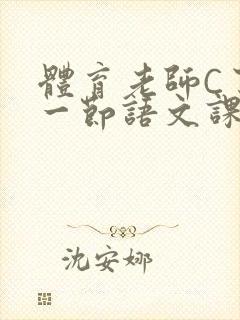 體育老師C
一節語文課
沈安娜